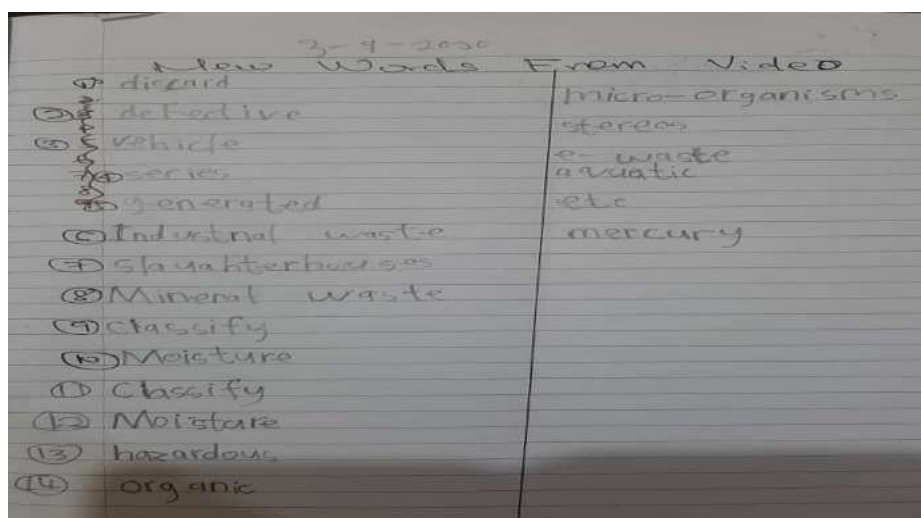 3-9-2020
New Words From Video
① discard
② defective
③ vehicle
④ series
⑤ generated
⑥ Industrial waste
⑦ Slaughterhouses
⑧ Mineral waste
⑨ classify
⑩ Moisture
⑪ Classify
⑫ Moisture
⑬ hazardous
⑭ organic
micro-organisms
stereos
e-waste
aquatic
etc
mercury